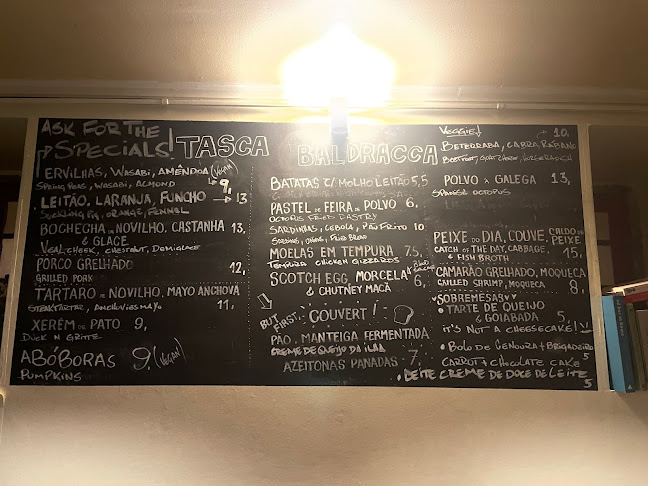 ASK FOR THE
SPECIALS!
TASCA
BALDRACCA
ERVILHAS, WASABI, AMÊNDOA (VEGAN)
SPRING PEAS, WASABI, ALMOND
9,
LEITÃO, LARANJA, FUNCHO → 13
SUCKLING PIG, ORANGE, FENNEL
BOCHECHA DE NOVILHO, CASTANHA 13,
& GLACE
VEAL CHEEK, CHESTNUT, DEMIGLACE
PORCO GRELHADO
GRILLED PORK
12,
TARTARO DE NOVILHO, MAYO ANCHOVA
STEAK TARTAR, ANCHOVIES MAYO
11,
XERÉM DE PATO 9,
DUCK N GRITZ
ABÓBORAS 9, (VEGAN)
PUMPKINS
BATATAS C/ MOLHO LEITÃO 5,5
PASTEL DE FEIRA DE POLVO 6,
OCTOPUS FRIED PASTRY
SARDINHAS, CEBOLA, PÃO FRITO 10
SARDINE, ONION, FRIED BREAD
MOELAS EM TEMPURA 7,5,
TEMPURA CHICKEN GIZZARDS
SCOTCH EGG, MORCELA
& CHUTNEY MAÇÃ
6,
BUT FIRST:
COUVERT!
PÃO, MANTEIGA FERMENTADA
CREME DE QUEIJO DA ILHA
AZEITONAS PANADAS
7,
VEGGIE!
10,
BETERRABA, CABRA, RÁBANO
POLVO À GALEGA 13,
SPANISH OCTOPUS
PEIXE DO DIA, COUVE, CALDO DE PEIXE
CATCH OF THE DAY, CABBAGE,
& FISH BROTH
15,
CAMARÃO GRELHADO, MOQUECA
GRILLED SHRIMP, MOQUECA
8,
SOBREMESAS
• TARTE DE QUEIJO
& GOIABADA
5,
IT'S NOT A CHEESECAKE!
• BOLO DE CENOURA + BRIGADEIRO
CARROT + CHOCOLATE CAKE 5
• LEITE CREME DE DOCE DE LEITE
5